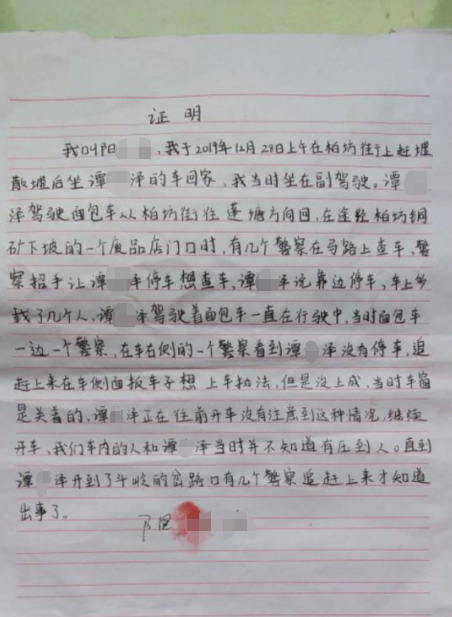 证明
我叫阳 ,我于2019年12月29日上午在柏坊街上赶堤
散堤后坐谭 泽的车回家,我当时坐在副驾驶。谭
泽驾驶面包车从柏坊街往蓬塘方向回,在途经柏坊铜
矿下坡的一个废品店门口时,有几个警察在马路上查车,警
察招手让谭 泽停车想查车,谭 泽说靠边停车,车上多
载了几个人,谭 泽驾驶着面包车一直在行驶中,当时面包车
一边一个警察,在车右侧的一个警察看到谭 泽没有停车,追
赶上来在车侧面扳车子想上车执法,但是没上成,当时车窗
是关着的,谭 泽正在往前开车没有注意到这种情况,继续
开车,我们车内的人和谭 泽当时并不知道有压到人。直到
谭 泽开到了斗岐的岔路口有几个警察追赶上来才知道
出事了。
阳